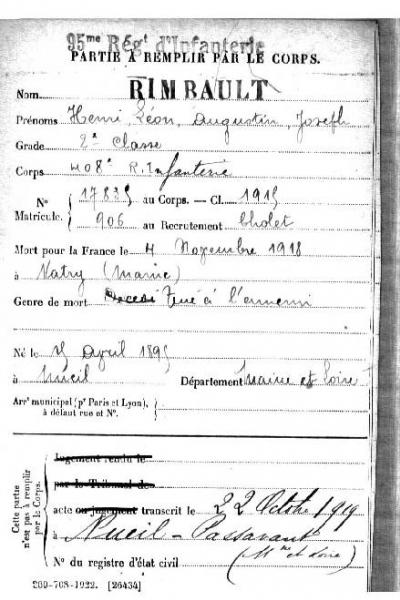 95me Régt d'Infanterie
PARTIE À REMPLIR PAR LE CORPS.
Nom RIMBAULT
Prénoms Henri, Léon, Augustin, Joseph
Grade 2e Classe
Corps 408e R. Infanterie
No 17835 au Corps. — Cl. 1915
Matricule. 906 au Recrutement Cholet
Mort pour la France le 4 Novembre 1918
à Vatry (Marne)
Genre de mort Tué à l'ennemi
Né le Avril 1895
à Nueil Département Maine et Loire
Arrt municipal (pr Paris et Lyon),
à défaut rue et No.
Cette partie
n'est pas à remplir
par le Corps.
Jugement rendu le
par le Tribunal de
acte ou jugement transcrit le 22 Octobre 1919
à Nueil-Passavant
(Mne et Loire)
No du registre d'état civil
269-708-1922. [26434]